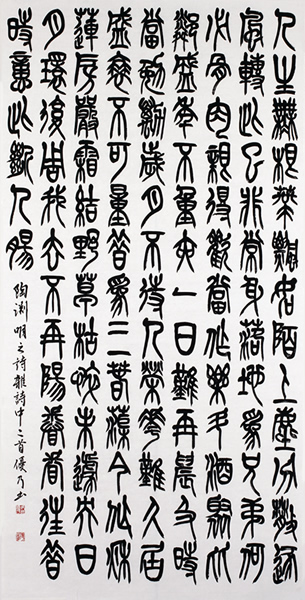 人生無根蒂飄如陌上塵分散逐
風轉此已非常身落地為兄弟何
必骨肉親得歡當作樂斗酒聚比
鄰盛年不重來一日難再晨及時
當勉勵歲月不待人榮華難久居
盛衰不可量昔為三春蕖今作秋
蓮房嚴霜結野草枯悴未遽央日
月環復周我去不再陽眷眷往昔
時憶此斷人腸
陶淵明之詩雜詩中二首優乃书